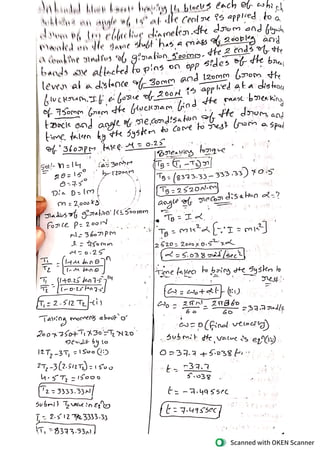 blocks each of which
subtends an angle of 15° at the centre is applied to a
drum of 1m effective diameter. the drum and flywheel
mounted on the same shaft has a mass of 2000kg and
a combine radius of gyration 500mm. the 2 ends of the
bands are attached to pins on opp sides of the brake
lever at a distance of 30mm and 120mm from the
fluckrum. If a force of 200N is applied at a distance
of 750mm from the fluckrum find the max breaking
torck and angle of of the drum and
time taken by the system to come to rest from a speed
of 360rpm take μ = 0.25
Sol:- n=14 a=30mm
2θ=15° b=120mm
θ=7.5°
Dia D=1m
m=2000kg
radius of k=500mm
Force P=200N
N=360rpm
l=750mm
μ=0.25
T1/T2 = [1+μtanθ / 1-μtanθ]^n
T1/T2 = [1+0.25tan7.5 / 1-0.25tan7.5]^14
T1=2.512T2 -(i)
Taking moments about 'O'
200×750+T1×30=T2×120
Devide by 10
12T2-3T1=15000 (ii)
12T2-3(2.512T2)=15000
4.5T2=15000
T2=3333.33N
submit T2 value in eqn(i)
T1=2.512 T2 3333.33
T1=8373.33N
Breaking torque
TB=(T1-T2)r
TB=(8373.33-333.33)×0.5
TB=2520N-M
angle of α=?
TB=Iα
TB=mk²α [∵I=mk²]
2520=2000×0.5²×α
α=5.038rad/sec²
Time taken to bring the system to
rest:
ω=ω0+αt -(iii)
ω0=2πN/60=2π360/60=37.7rad/s
ω=0 (final velocity)
submit the value in eqn(iii)
0=37.7+5.038t
t=-37.7/5.038
t=-7.495sec
t=7.495sec
Scanned with OKEN Scanner